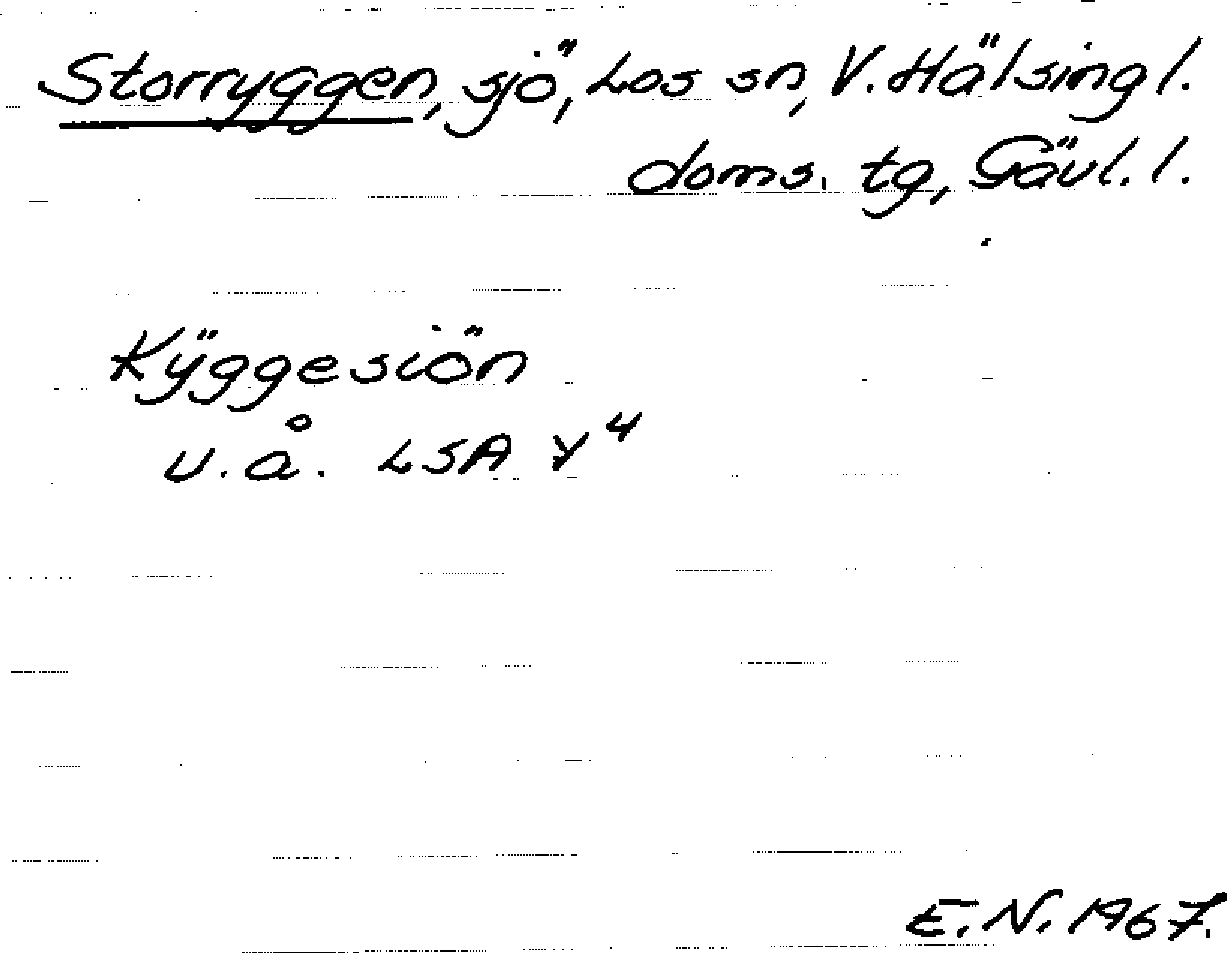 Storryggen, sjö, Los sn, V. Hälsingl.
doms. tg, Gävl. l.
Kÿggesiön
u. å. LSA Y⁴
E. N. 1967.